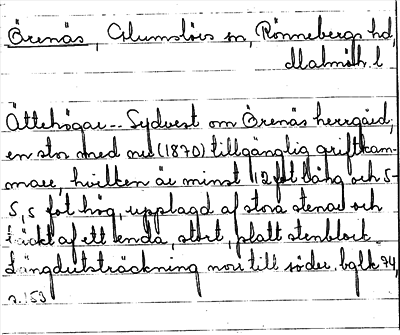 Örenäs, Glumslövs sn, Rönnebergs hd,
Malmöh. l
Ättehögar -- Sydvest om Örenäs herrgård,
en stor med nu (1870) tillgänglig griftkam-
mare, hvilken är minst 12 fot lång och 5-
5,5 fot hög, upplagd af stora stenar och
täckt af ett enda, stort, platt stenblock.
Längdutsträckning norr till söder. bglk 74,
s. 153